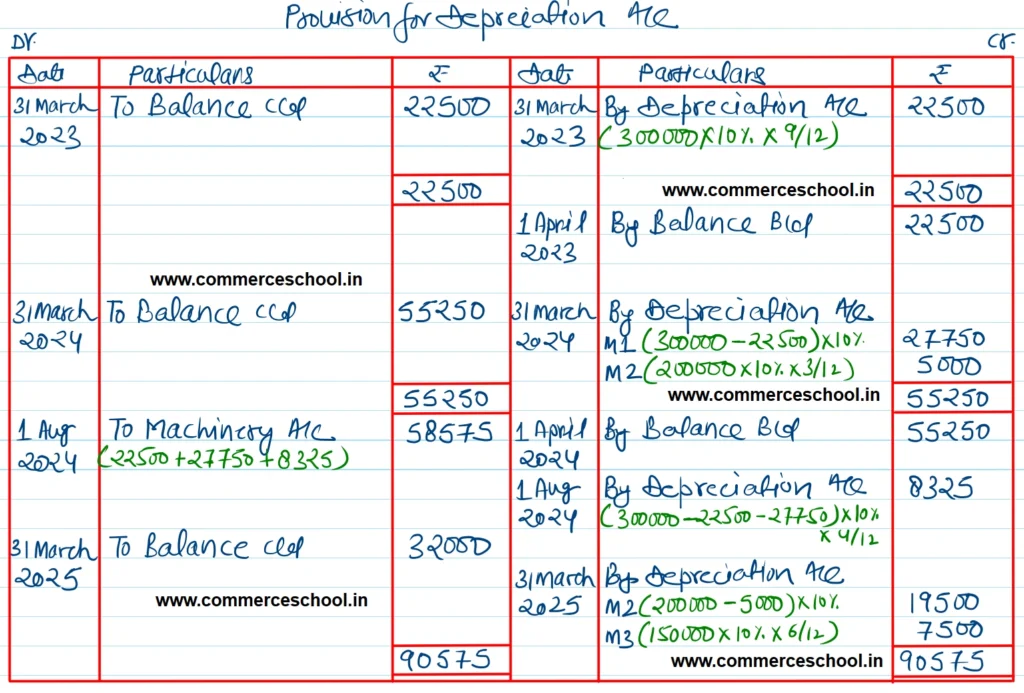 Provision for Depreciation A/c
Dr. Cr.
Date Particulars ₹ Date Particulars ₹
31 March To Balance C/d 22500 31 March By Depreciation A/c 22500
2023 2023 (300000 X 10% X 9/12)
22500 www.commerceschool.in 22500
1 April By Balance B/d 22500
2023
www.commerceschool.in
31 March To Balance C/d 55250 31 March By Depreciation A/c
2024 2024 M1 (300000 - 22500) X 10% 27750
M2 (200000 X 10% X 3/12) 5000
55250 www.commerceschool.in 55250
1 Aug To Machinery A/c 58575 1 April By Balance B/d 55250
2024 (22500 + 27750 + 8325) 2024
1 Aug By Depreciation A/c 8325
2024 (300000 - 22500 - 27750) X 10%
X 4/12
31 March To Balance C/d 32000
2025 31 March By Depreciation A/c
www.commerceschool.in 2025 M2 (200000 - 5000) X 10% 19500
M3 (150000 X 10% X 6/12) 7500
90575 www.commerceschool.in 90575